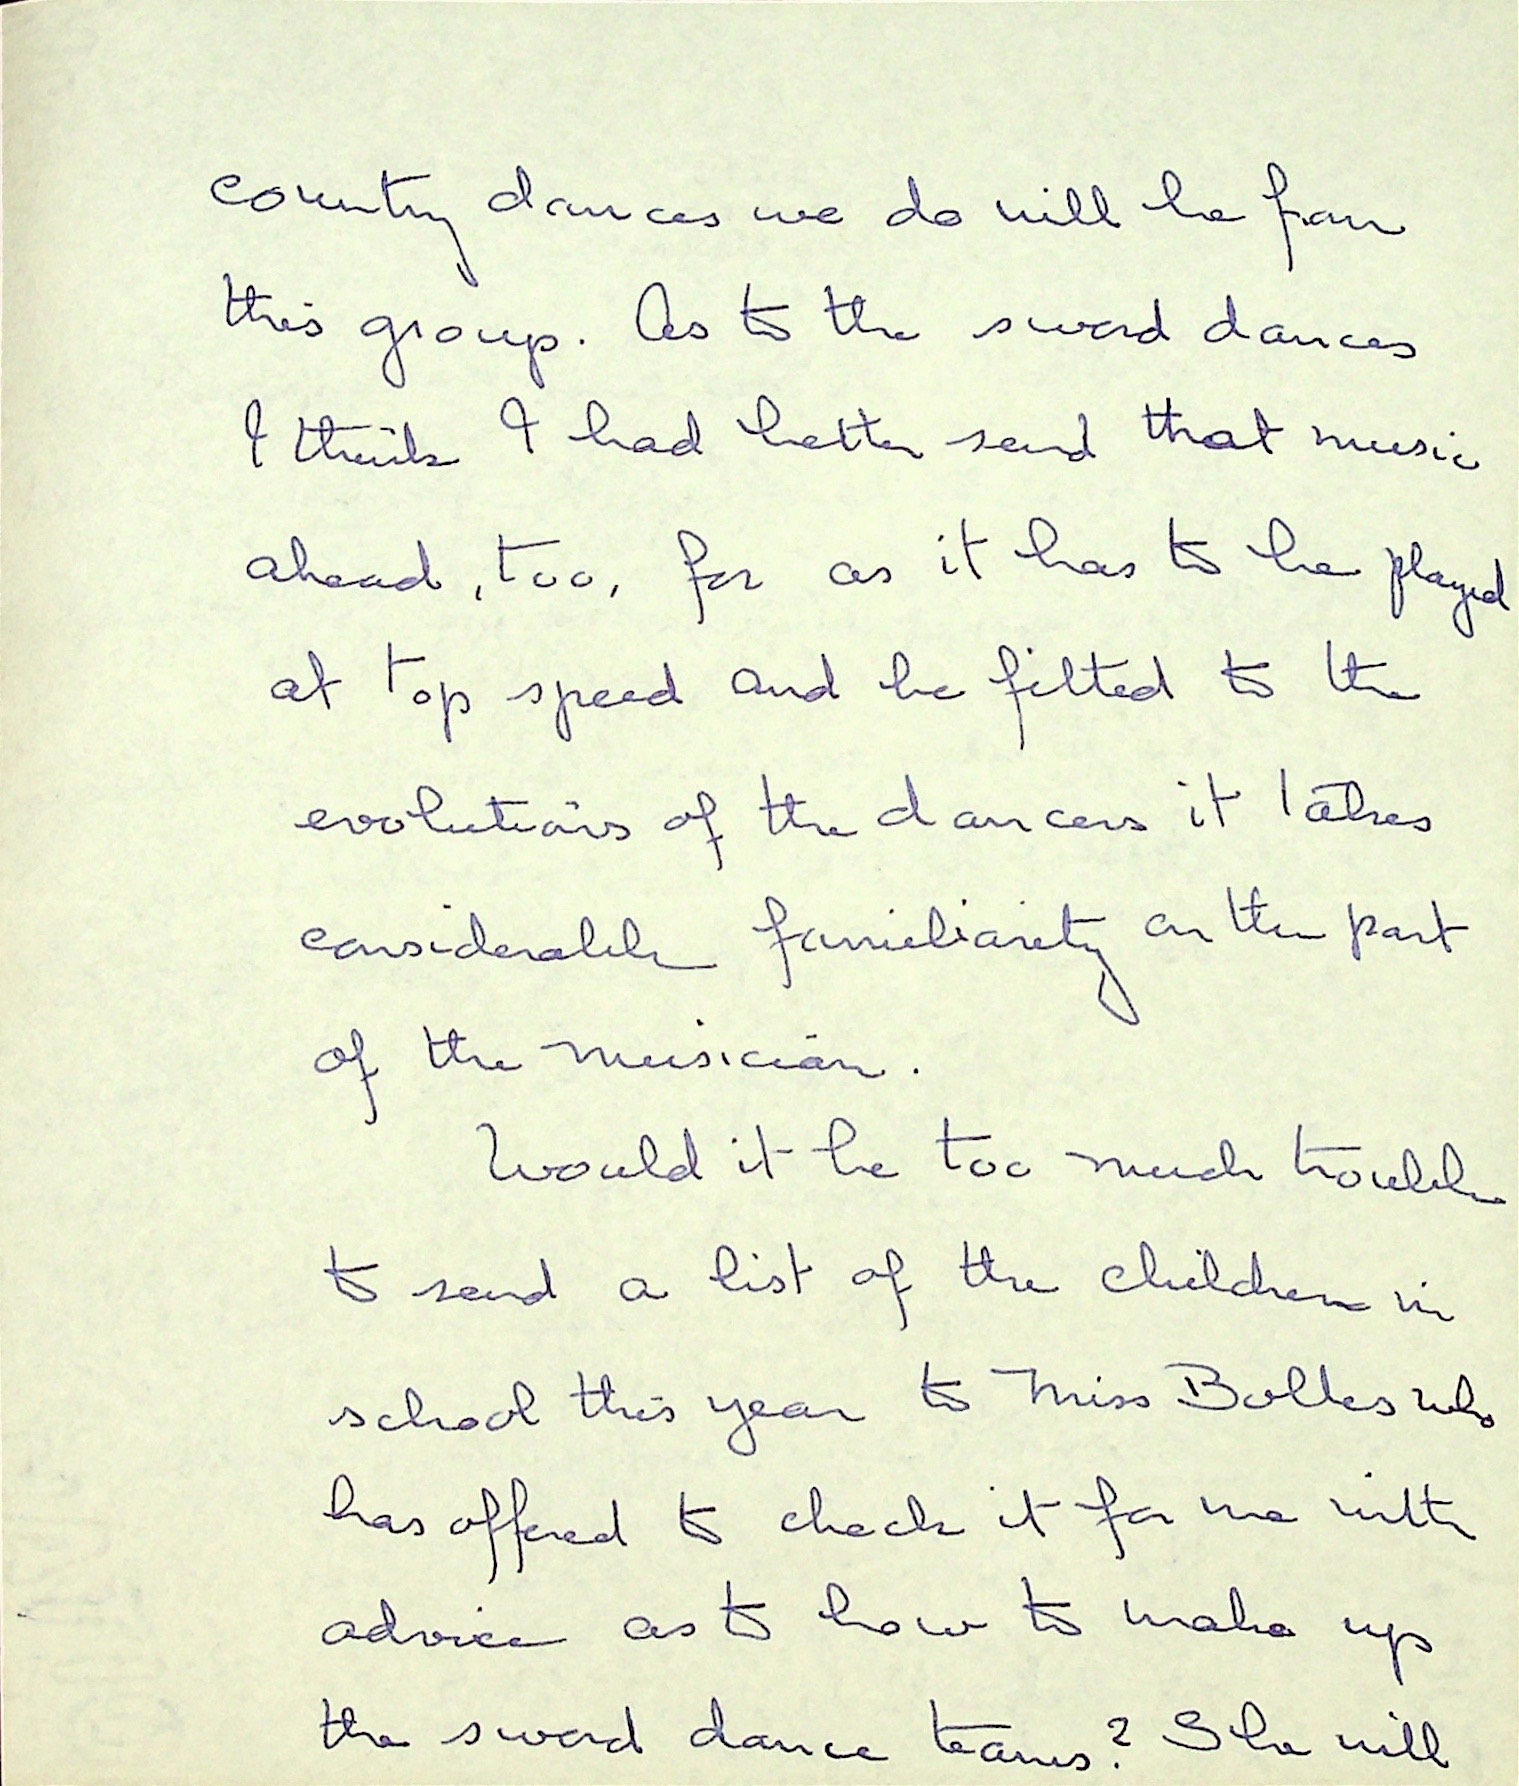 country dances we do will be from
this group. As to the sword dances
I think I had better send that music
ahead, too, for as it has to be played
at top speed and be fitted to the
evolutions of the dancers it takes
considerable familiarity on the part
of the musician.
Would it be too much trouble
to send a list of the children in
school this year to Miss Bolles who
has offered to check it for me with
advice as to how to make up
the sword dance teams? She will